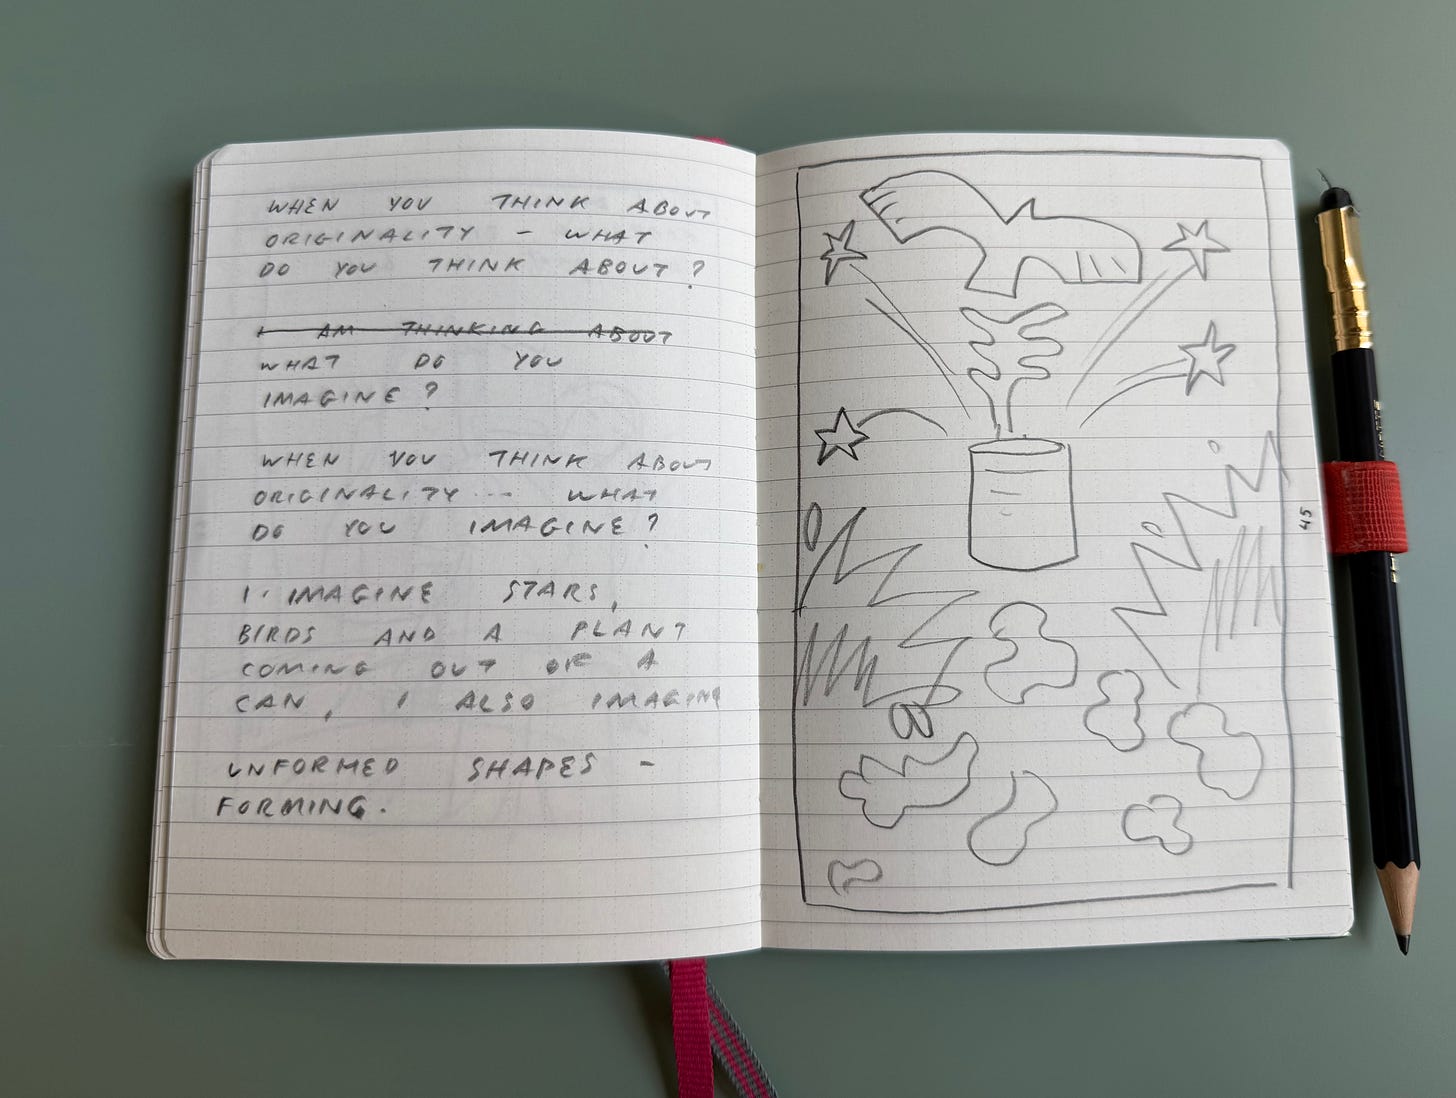 WHEN YOU THINK ABOUT
ORIGINALITY – WHAT
DO YOU THINK ABOUT?
I AM THINKING ABOUT
WHAT DO YOU
IMAGINE?
WHEN YOU THINK ABOUT
ORIGINALITY ... WHAT
DO YOU IMAGINE?
I IMAGINE STARS,
BIRDS AND A PLANT
COMING OUT OF A
CAN, I ALSO IMAGINE
UNFORMED SHAPES –
FORMING.
45